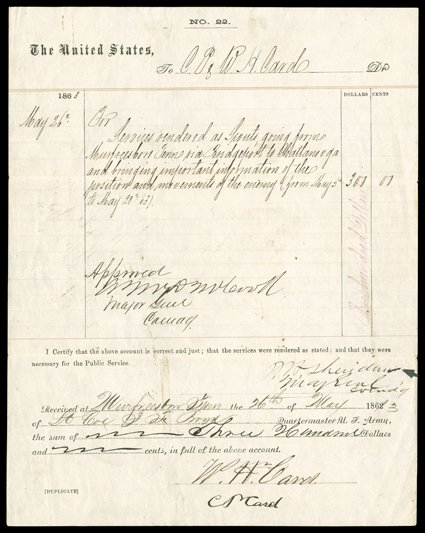 NO. 22.
The United States,
To C. & W. H. Card Dr
1863
DOLLARS CENTS
May 26th For
Services rendered as Scouts going from
Murfreesboro Tenn via Bridgeport to Chattanooga
and bringing important information of the
position and movements of the enemy (from May 5th
to May 20th 63) 300 00
Approved
Major Genl
Comdg
I Certify that the above account is correct and just; that the services were rendered as stated; and that they were
necessary for the Public Service.
P. H. Sheridan
Maj Genl Comdg
Received at Murfreesboro Tenn the 26th of May 1863
of Quartermaster U. S. Army,
the sum of Three Hundred Dollars
and cents, in full of the above account.
W. H. Card
C. Card
[DUPLICATE]